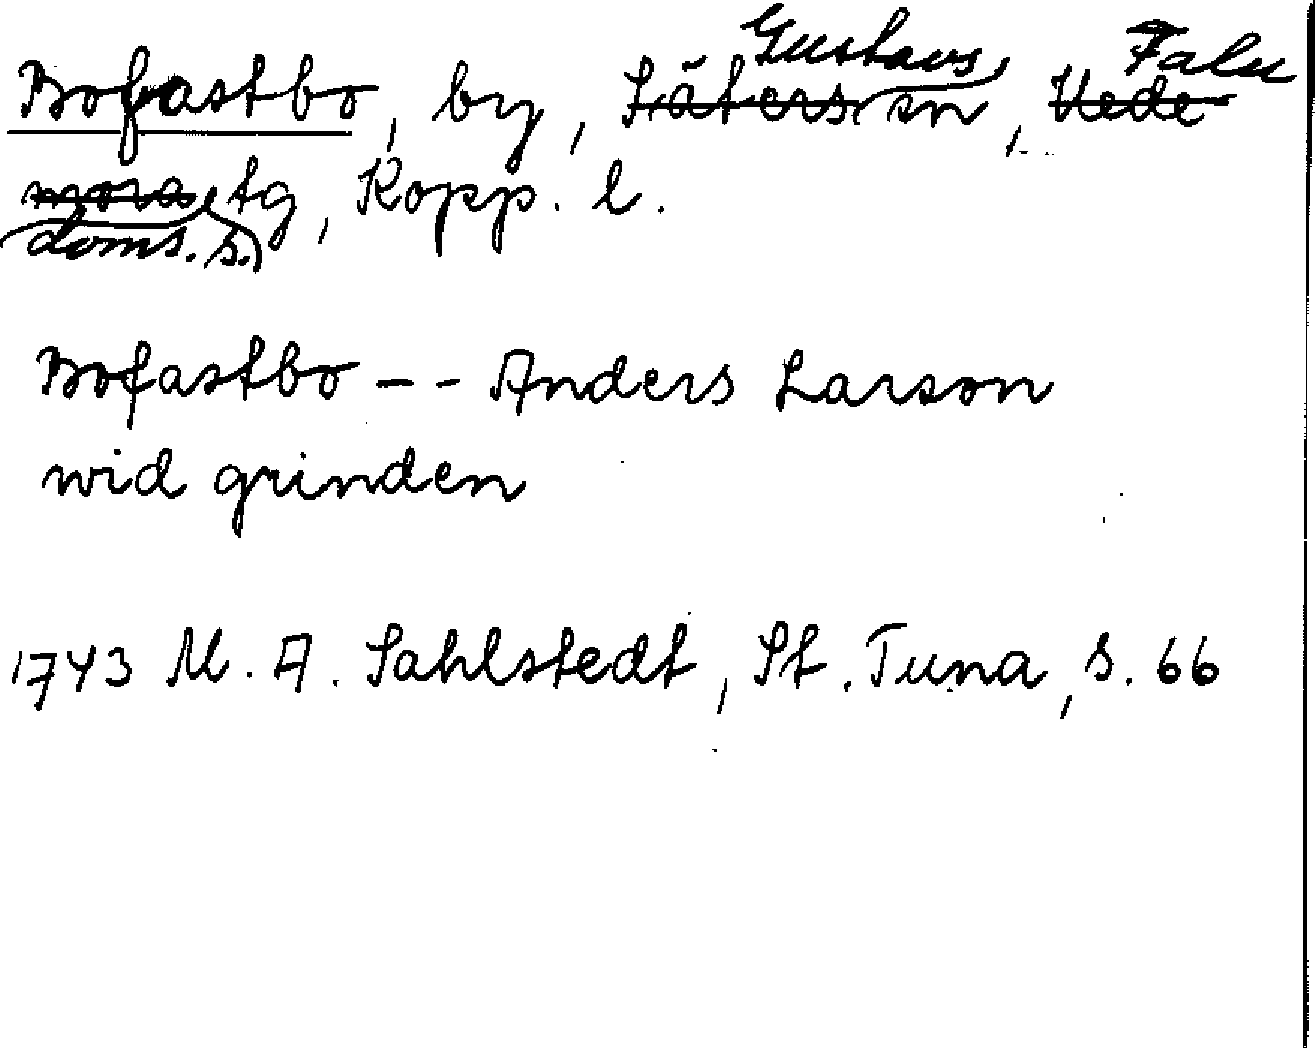 Gustavs Falu
Bofastbo, by, Säters sn, Vede-
mora tg, Kopp. l.
doms. s.
Bofastbo -- Anders Larson
wid grinden
1743 M. A. Sahlstedt, St. Tuna, s. 66